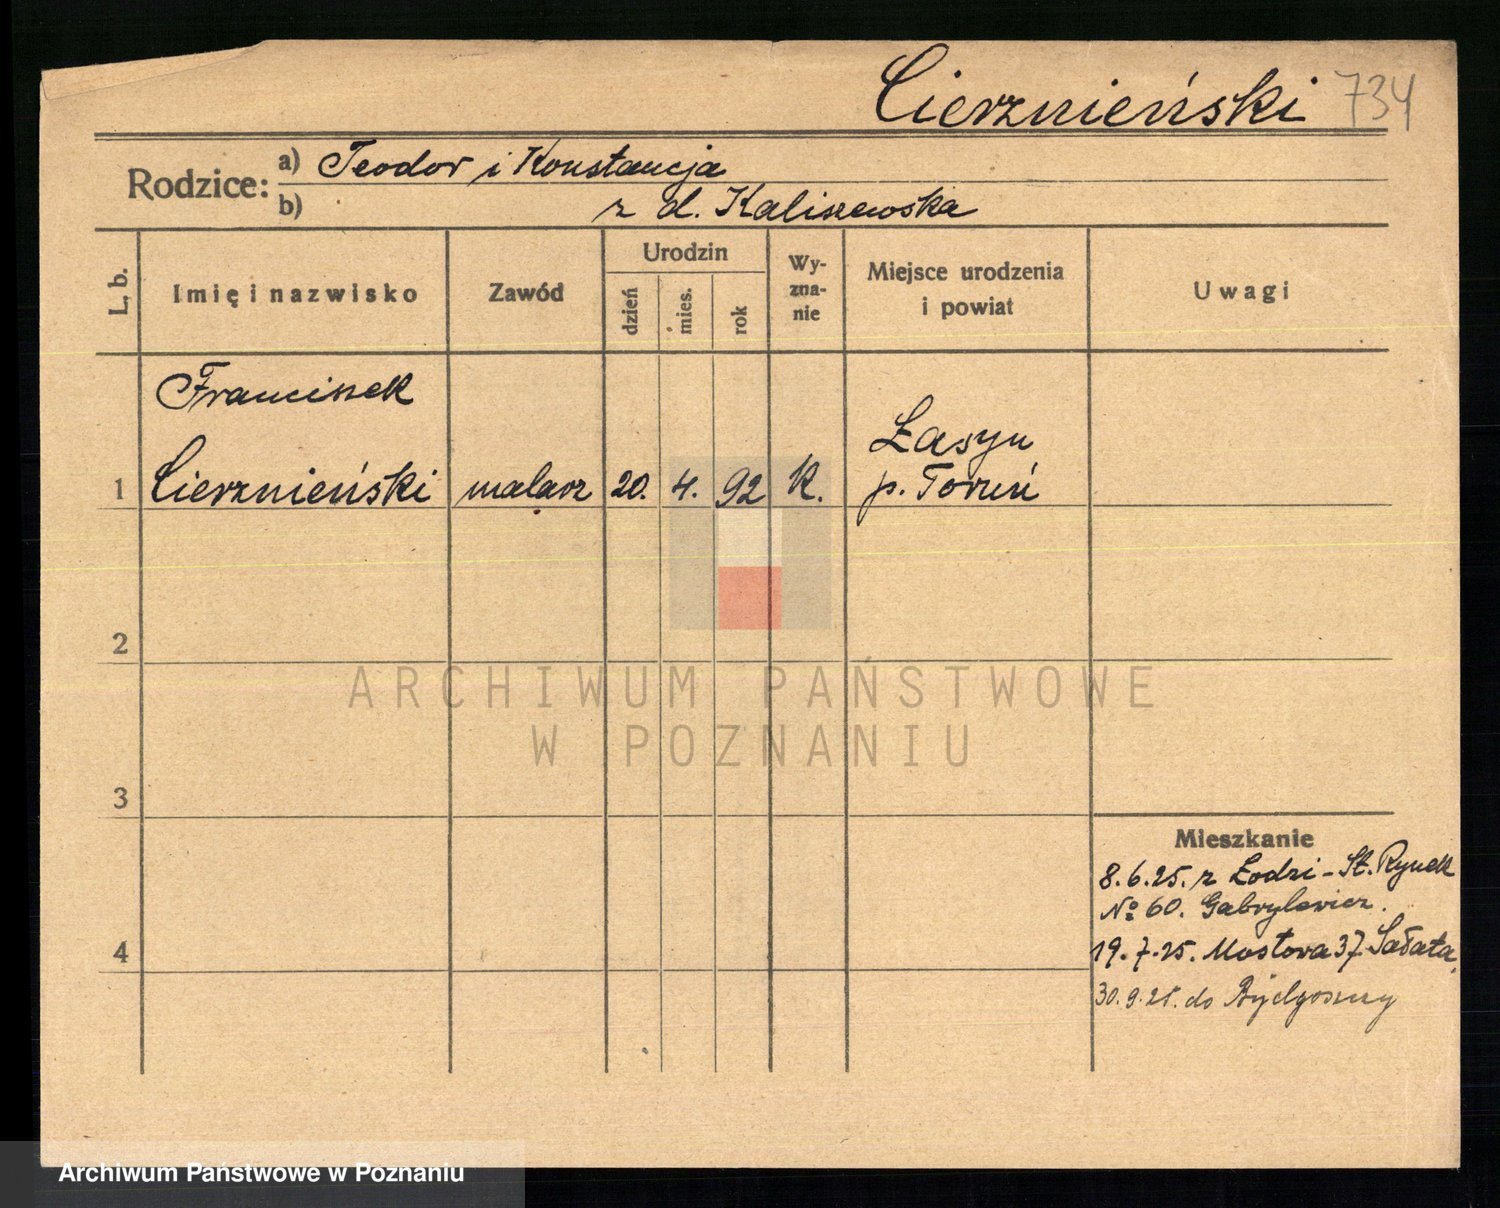 Cierznieński 734
Rodzice: a) Teodor i Konstancja
b) z d. Kaliszewska
L. b. Imię i nazwisko Zawód Urodzin dzień mies. rok Wyznanie Miejsce urodzenia i powiat Uwagi
Franciszek
Łasyn
1 Cierznieński malarz 20. 4. 92 k. p. Toruń
2
ARCHIWUM PAŃSTWOWE
W POZNANIU
3
Mieszkanie
8.6.25. z Łodzi - St. Rynek
№ 60. Gabrylewicz.
4
19.7.25. Mostowa 37. Sałata.
30.9.25. do Bydgoszczy
Archiwum Państwowe w Poznaniu